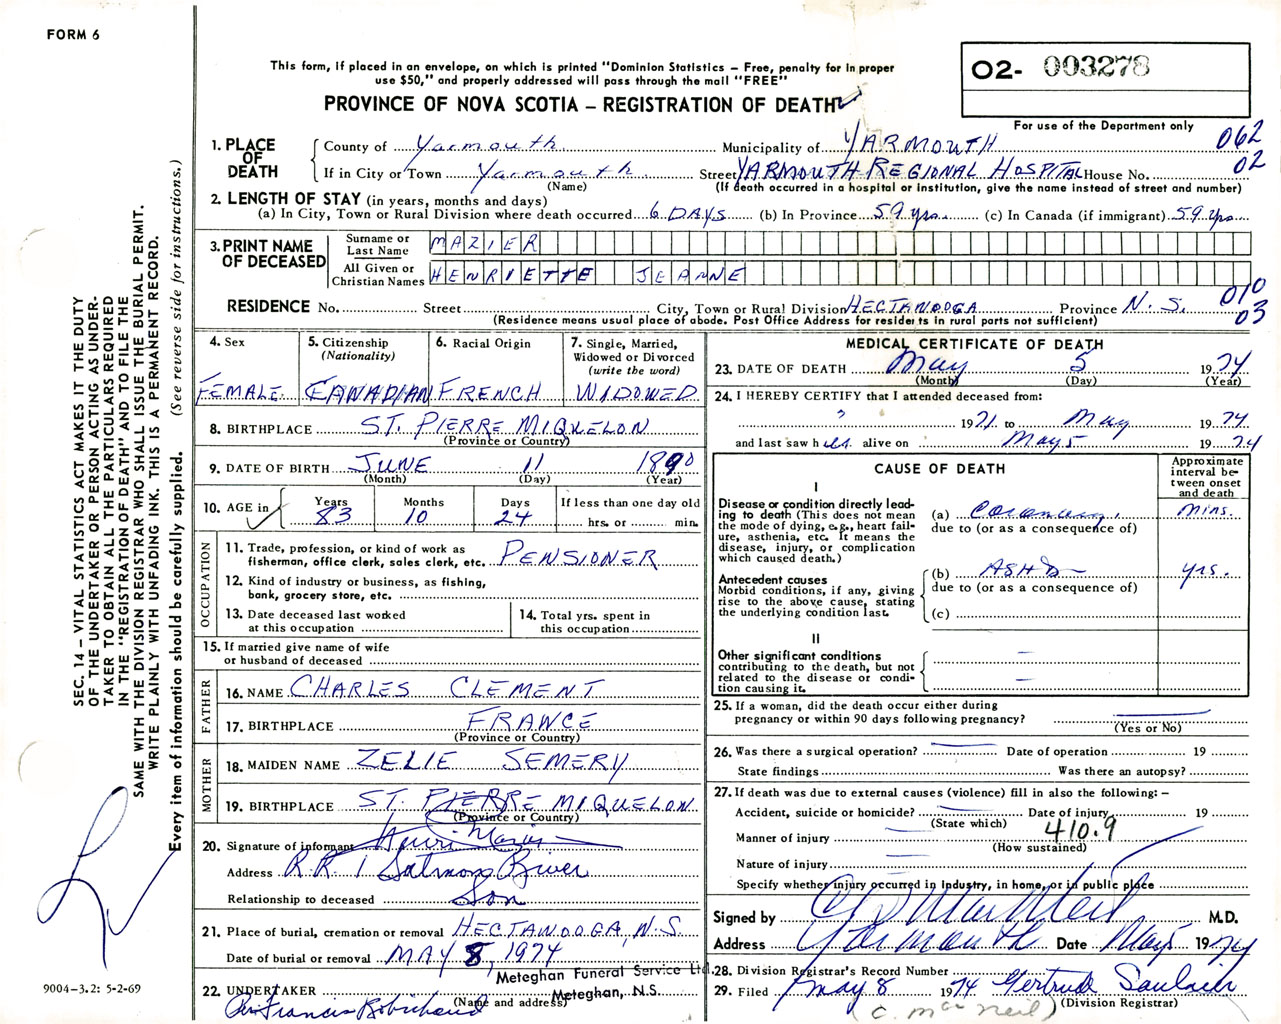 FORM 6
This form, if placed in an envelope, on which is printed "Dominion Statistics – Free, penalty for improper
use $50," and properly addressed will pass through the mail "FREE"
PROVINCE OF NOVA SCOTIA – REGISTRATION OF DEATH
02- 003278
For use of the Department only
062
02
1. PLACE OF DEATH County of Yarmouth Municipality of YARMOUTH
If in City or Town Yarmouth (Name) Street YARMOUTH REGIONAL HOSPITAL House No.
(If death occurred in a hospital or institution, give the name instead of street and number)
2. LENGTH OF STAY (in years, months and days)
(a) In City, Town or Rural Division where death occurred 6 DAYS (b) In Province 59 yrs. (c) In Canada (if immigrant) 59 yrs.
3. PRINT NAME OF DECEASED
Surname or Last Name MAZIER
All Given or Christian Names HENRIETTE JEANNE
010
03
RESIDENCE No. Street City, Town or Rural Division HECTANOOGA Province N.S.
(Residence means usual place of abode. Post Office Address for residents in rural parts not sufficient)
4. Sex
FEMALE
5. Citizenship (Nationality)
CANADIAN
6. Racial Origin
FRENCH
7. Single, Married, Widowed or Divorced (write the word)
WIDOWED
8. BIRTHPLACE ST. PIERRE MIQUELON
(Province or Country)
9. DATE OF BIRTH JUNE 11 1890
(Month) (Day) (Year)
10. AGE in Years 83 Months 10 Days 24 If less than one day old hrs. or min.
OCCUPATION
11. Trade, profession, or kind of work as
fisherman, office clerk, sales clerk, etc. PENSIONER
12. Kind of industry or business, as fishing,
bank, grocery store, etc.
13. Date deceased last worked
at this occupation
14. Total yrs. spent in
this occupation
15. If married give name of wife
or husband of deceased
FATHER
16. NAME CHARLES CLEMENT
17. BIRTHPLACE FRANCE
(Province or Country)
MOTHER
18. MAIDEN NAME ZELIE SEMERY
19. BIRTHPLACE ST. PIERRE MIQUELON
(Province or Country)
20. Signature of informant Henri Mazier
Address R.R. 1 Salmon River
Relationship to deceased Son
21. Place of burial, cremation or removal HECTANOOGA, N.S.
Date of burial or removal MAY 8, 1974
22. UNDERTAKER Meteghan Funeral Service Ltd.
(Name and address) Meteghan, N.S.
Per Francis Robichaud
MEDICAL CERTIFICATE OF DEATH
23. DATE OF DEATH May 5 1974
(Month) (Day) (Year)
24. I HEREBY CERTIFY that I attended deceased from:
? 1971 to May 1974
and last saw her alive on May 5 1974
CAUSE OF DEATH
Approximate interval between onset and death
I
Disease or condition directly lead-
ing to death (This does not mean
the mode of dying, e.g., heart fail-
ure, asthenia, etc. It means the
disease, injury, or complication
which caused death.)
(a) Coronary. mins.
due to (or as a consequence of)
Antecedent causes
Morbid conditions, if any, giving
rise to the above cause, stating
the underlying condition last.
(b) ASHD yrs.
due to (or as a consequence of)
(c)
II
Other significant conditions
contributing to the death, but not
related to the disease or condi-
tion causing it.
25. If a woman, did the death occur either during
pregnancy or within 90 days following pregnancy?
(Yes or No)
26. Was there a surgical operation? Date of operation 19
State findings Was there an autopsy?
27. If death was due to external causes (violence) fill in also the following: –
Accident, suicide or homicide? Date of injury 19
(State which)
410.9
Manner of injury
(How sustained)
Nature of injury
Specify whether injury occurred in Industry, in home, or in public place
Signed by MacNeil M.D.
Address Yarmouth Date May 5 1974
28. Division Registrar's Record Number
29. Filed May 8 1974 Gertrude Saulnier
(Division Registrar)
(C. MacNeil)
SEC. 14 – VITAL STATISTICS ACT MAKES IT THE DUTY
OF THE UNDERTAKER OR PERSON ACTING AS UNDER-
TAKER TO OBTAIN ALL THE PARTICULARS REQUIRED
IN THE "REGISTRATION OF DEATH" AND TO FILE THE
SAME WITH THE DIVISION REGISTRAR WHO SHALL ISSUE THE BURIAL PERMIT.
WRITE PLAINLY WITH UNFADING INK. THIS IS A PERMANENT RECORD.
Every item of information should be carefully supplied. (See reverse side for instructions.)
9004-3.2: 5-2-69